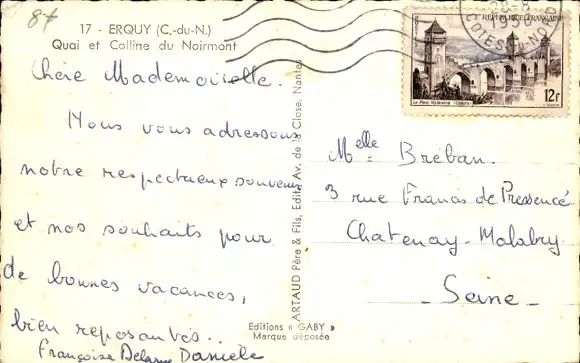 17 - ERQUY (C.-du-N.)
Quai et Colline du Noirmont
Chère Mademoiselle.
Nous vous adressons
notre respectueux souvenir
et nos souhaits pour
de bonnes vacances,
bien reposantes..
Françoise Danièle
ARTAUD Père & Fils, Edit. Av. de la Close, Nantes
Editions « GABY »
Marque déposée
28-8
COTES-DU-NORD
REPUBLIQUE FRANÇAISE
Le Pont Valentré (Cahors)
12f
Melle Breban.
3 rue Francis de Pressencé
Chatenay-Malabry
Seine